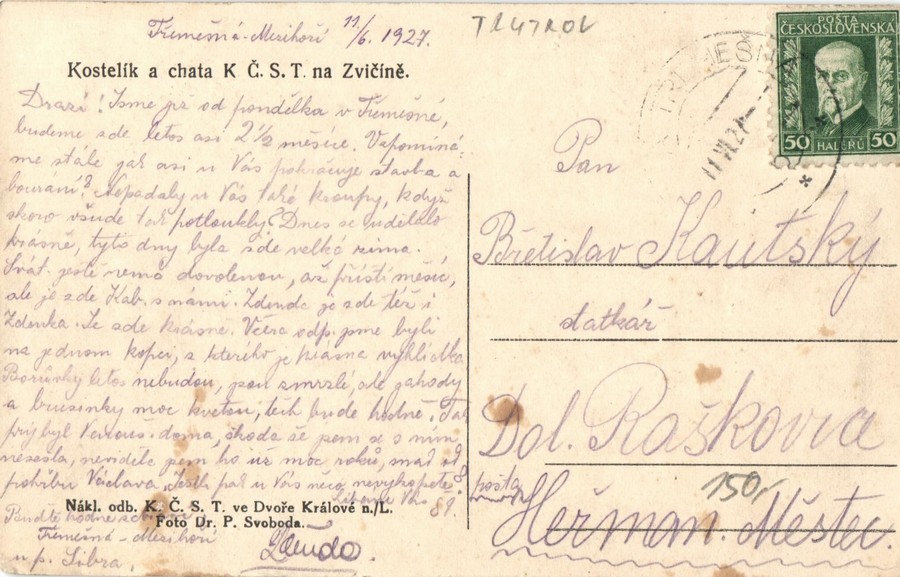 Třemešná-Mezihoří 11/6. 1927.
TRUTNOV
Kostelík a chata K Č. S. T. na Zvičíně.
Drazí! Jsme již od pondělka v Třemešné,
budeme zde letos asi 2 1/2 měsíce. Vzpomíná-
me stále jak asi u Vás pokračuje stavba a
bourání? Nepadaly u Vás také kroupy, když
skoro všude tak potloukly? Dnes se udělalo
krásně, tyto dny byla zde velká zima.
Svát. ještě nemá dovolenou, až příští měsíc,
ale je zde Kab. s námi. Zdenda je zde též i
Zdenka. Je zde krásně. Včera odp. jsme byli
na jednom kopci, s kterého je krásná vyhlídka
Borůvky letos nebudou, jsou zmrzlé, ale jahody
a brusinky moc kvetou, těch bude hodně. Tak
prý byl doma, škoda že jsem se s ním
nesešla, neviděla jsem ho už moc roků, snad od
pohřbu Václava. Jestli pak u Vás něco nevykopete
Nákl. odb. K. Č. S. T. ve Dvoře Králové n./L.
Foto Dr. P. Svoboda.
Buďte hodně
Třemešná - Mezihoří
u p. Libra,
POŠTA
ČESKOSLOVENSKÁ
50 HALÉŘŮ 50
Pan
Břetislav Kautský
statkář
Dol. Raškovia
pošta
Heřman. Městec.
150,-